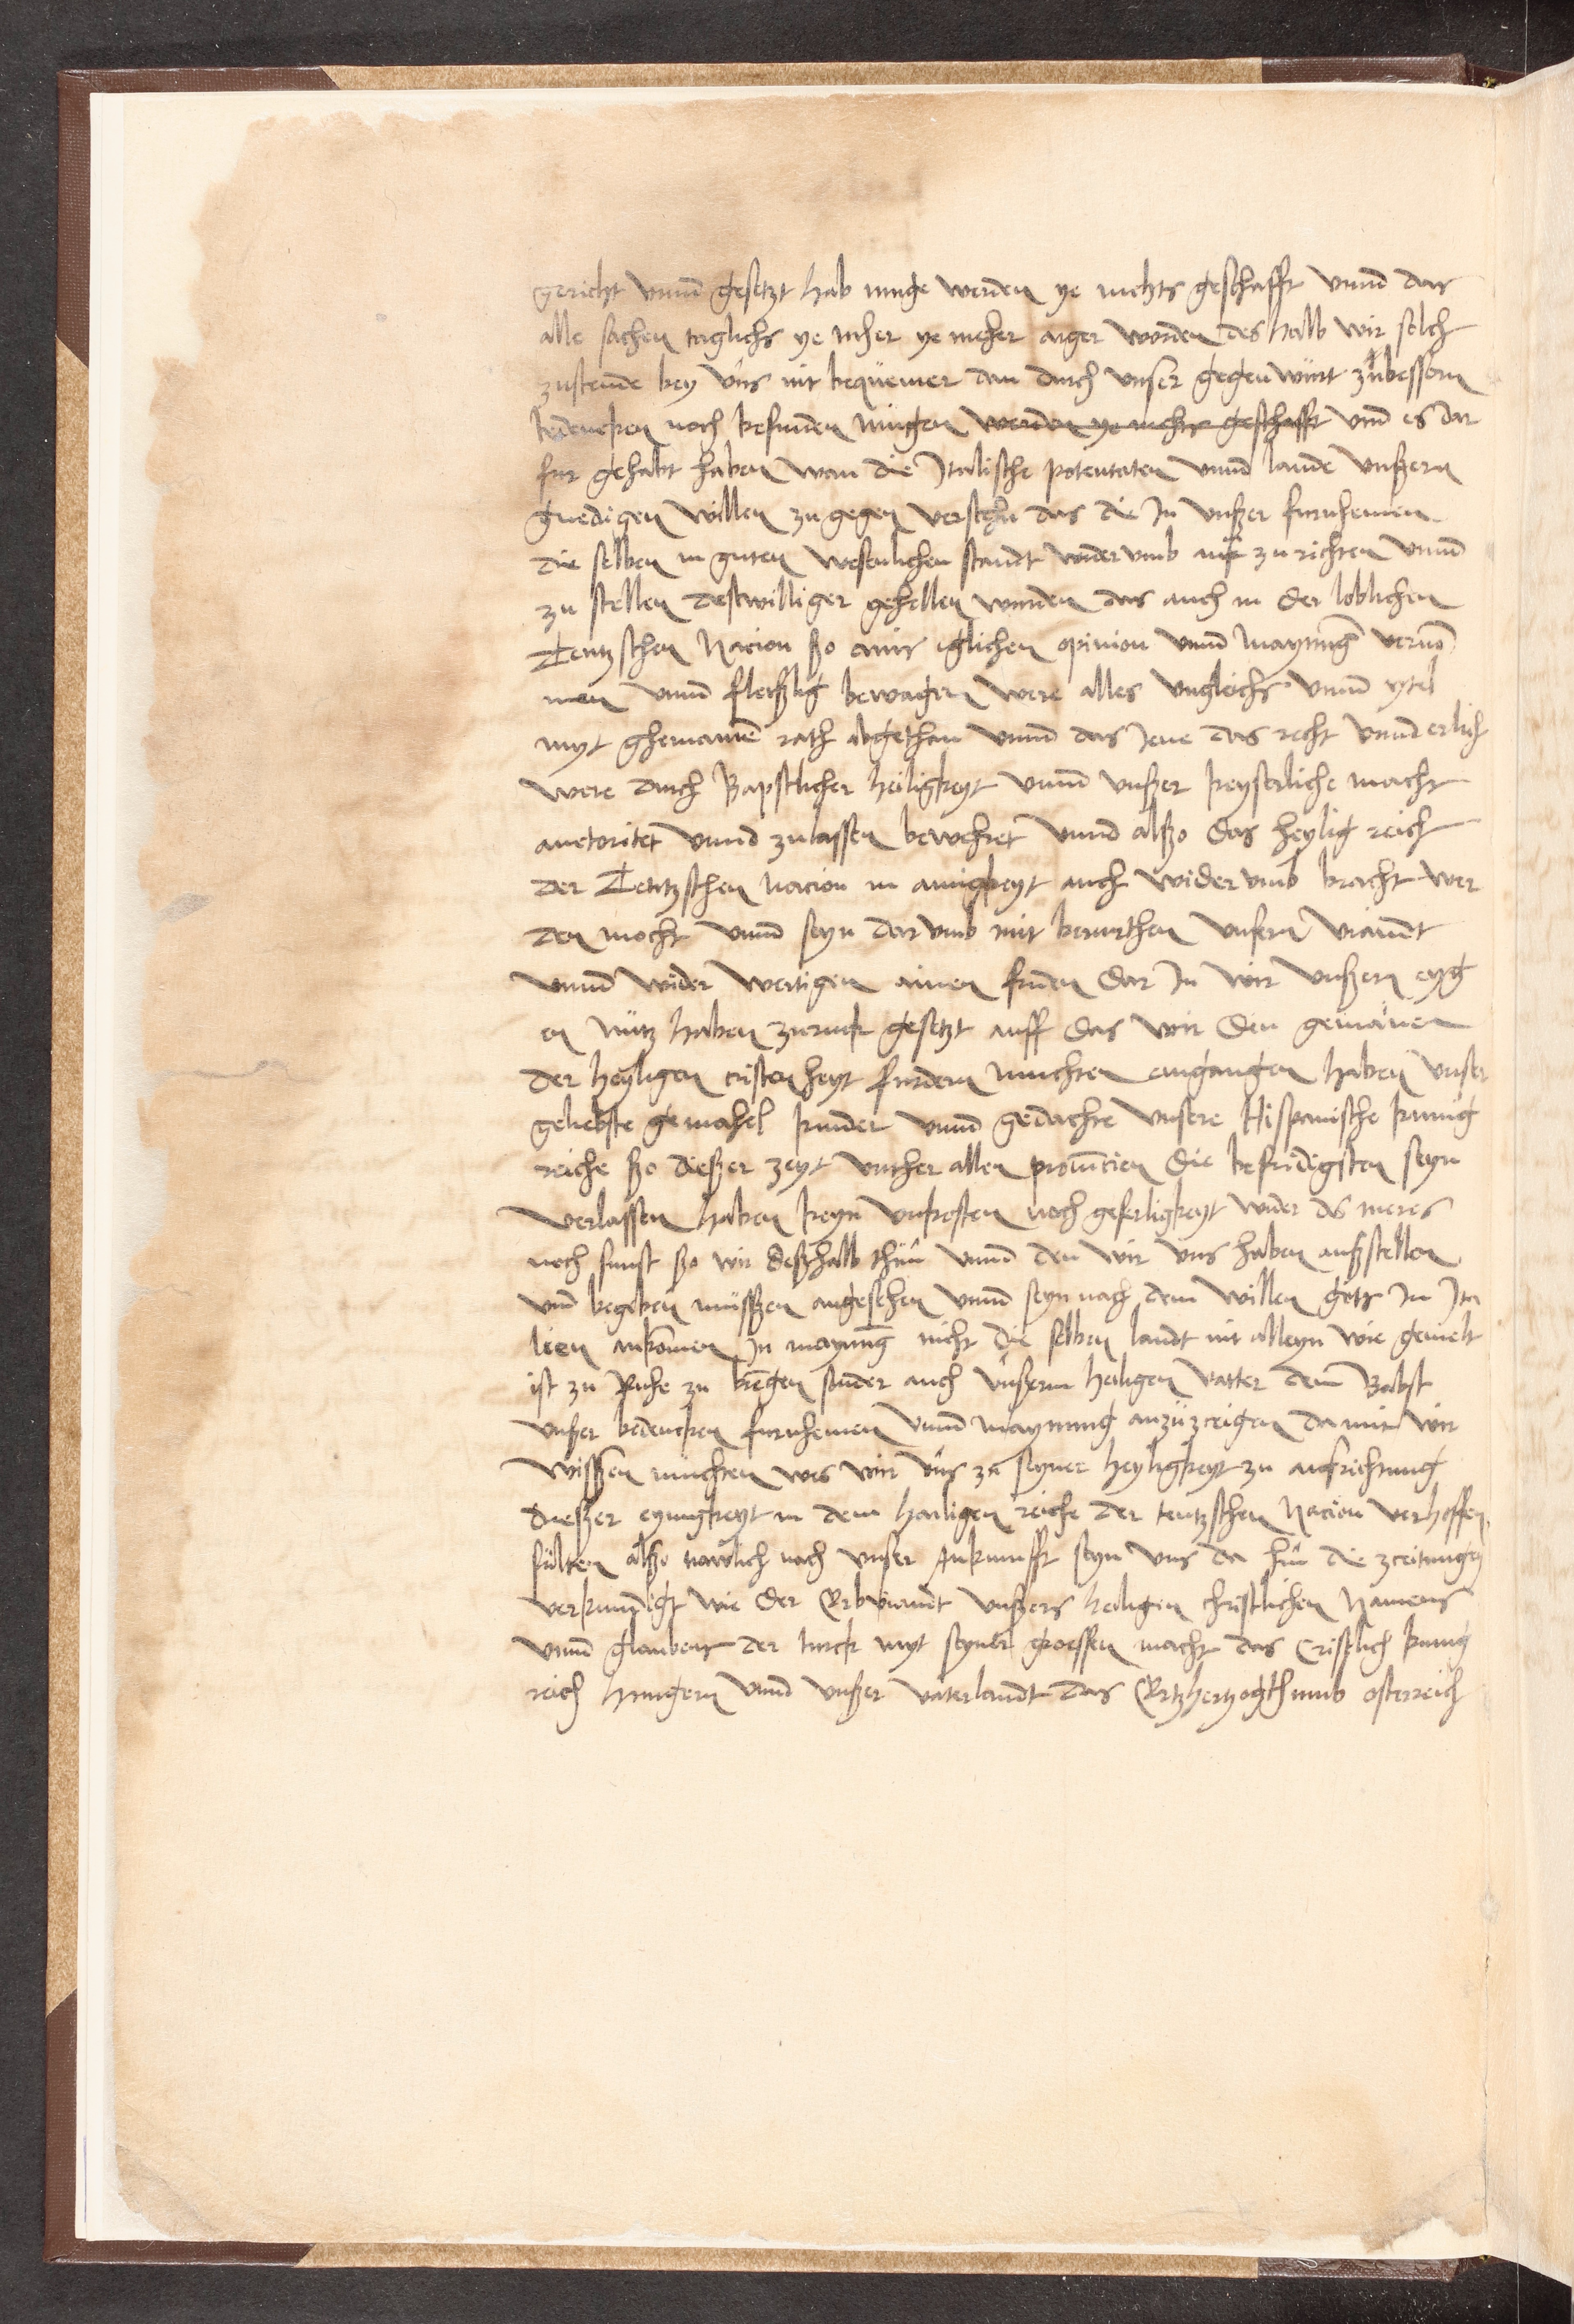 gericht vnnd gesetzt hab muge werden ye nichts geschafft vnnd das
alle sachen teglichs ye mher ye meher arger worden des halb wir solch
zustende bey vns nit bequemer dan durch vnser gegenwurt zubessern
bedencken noch befinden mugen werden ye nichts geschafft vnd es dar
fur gehabt haben wan die Italische potentaten vnnd lande vnßern
gnedigen willen zu gegen verstehn das die In vnßer furnhemen
die selben in guten wesenlichen standt widervmb auff zu richten vnnd
zu stellen destwilliger gehellen wurden das auch in der loblichen
Teutzschen Nacion ßo ains iglichen opinion vnnd maynung vernō
men vnnd fleißig bewagen were alles vngleichs vnnd vtel
myt ghemainē rath abgethan vnnd das Jene das recht vnnd erlich
were durch Bapstlicher heiligkeyt vnnd vnßer keyserliche macht
auctoritet vnnd zulassen bewehret vnnd alßo das heylig reich
der Teutzschen nacion in ainigkeyt auch widervmb bracht wer
den mocht vnnd seyn darvmb mit berurthen vnsern viandt
vnnd wider wertigen ainen friden dar In wir vnßern eyg
en nutz haben zuruck gesetzt auff das wir den gemainen
der heyligen cristenheyt furdern muchten eingangen haben vnser
geliebste gemahel kinder vnnd gedachte vnsere Hispanische kunig
reiche ßo dießer zeyt vnther allen prouincien die befridigsten seyn
verlassen haben keyn vnkosten noch geferligkeyt wider ds meres
noch sunst ßo wir deßhalb thun vnnd den wir vns haben außstellen
vnd begeben müssßen angesehen vnnd seyn nach dem willen gots In Ita
lien ankomen In maynung nicht die selben landt nit alleyn wie gemelt
ist zu Ruhe zu brengen sunder auch vnßerm heiligen vatter dem Babst
vnßer bedencken furnhemen vnnd maynung anzuzceigen da mit wir
wissßen muchten wes wir vns zu seyner heyligkeyt zu aufrichtung
dießer eynigkeyt in dem hailigen reiche der teutzschen Nacion verhoffen
sulten alßo nawlich nach vnser Ankunfft seyn vns da hin die zceitungen
verkundigt wie der Erbviandt vnßers heiligen christlichen Namens
vnnd glaubens der turck myt seyner groessen macht das Cristlich kunig
reich Hungern vnnd vnßer vaterlandt das Ertzhertzogthumb osterreich